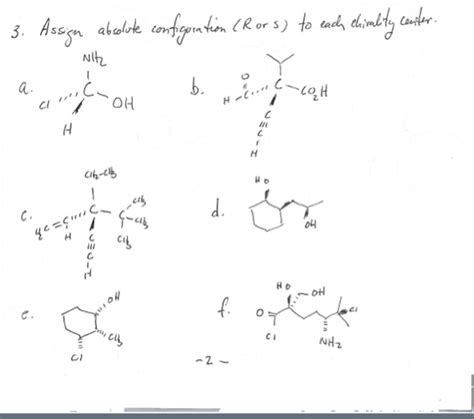 3. Assign absolute configuration (R or S) to each chirality center.
a.
NH2
Cl
C
OH
H
b.
O
H-C
C
CO2H
C
C
H
c.
CH2-CH3
H2C=C
H
C
C
CH3
CH3
CH3
C
C
H
d.
HO
OH
e.
OH
CH3
Cl
f.
HO
OH
O
Cl
Cl
NH2
-2-